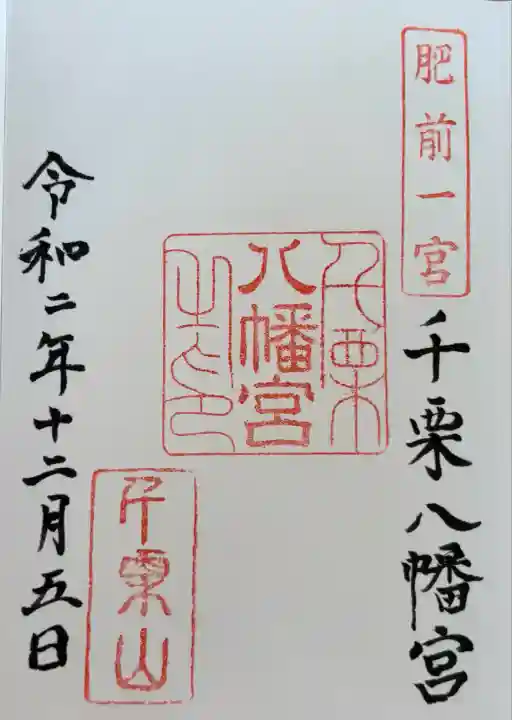 肥前一宮
千栗八幡宮
千栗
八幡宮
之印
千栗山
令和二年十二月五日